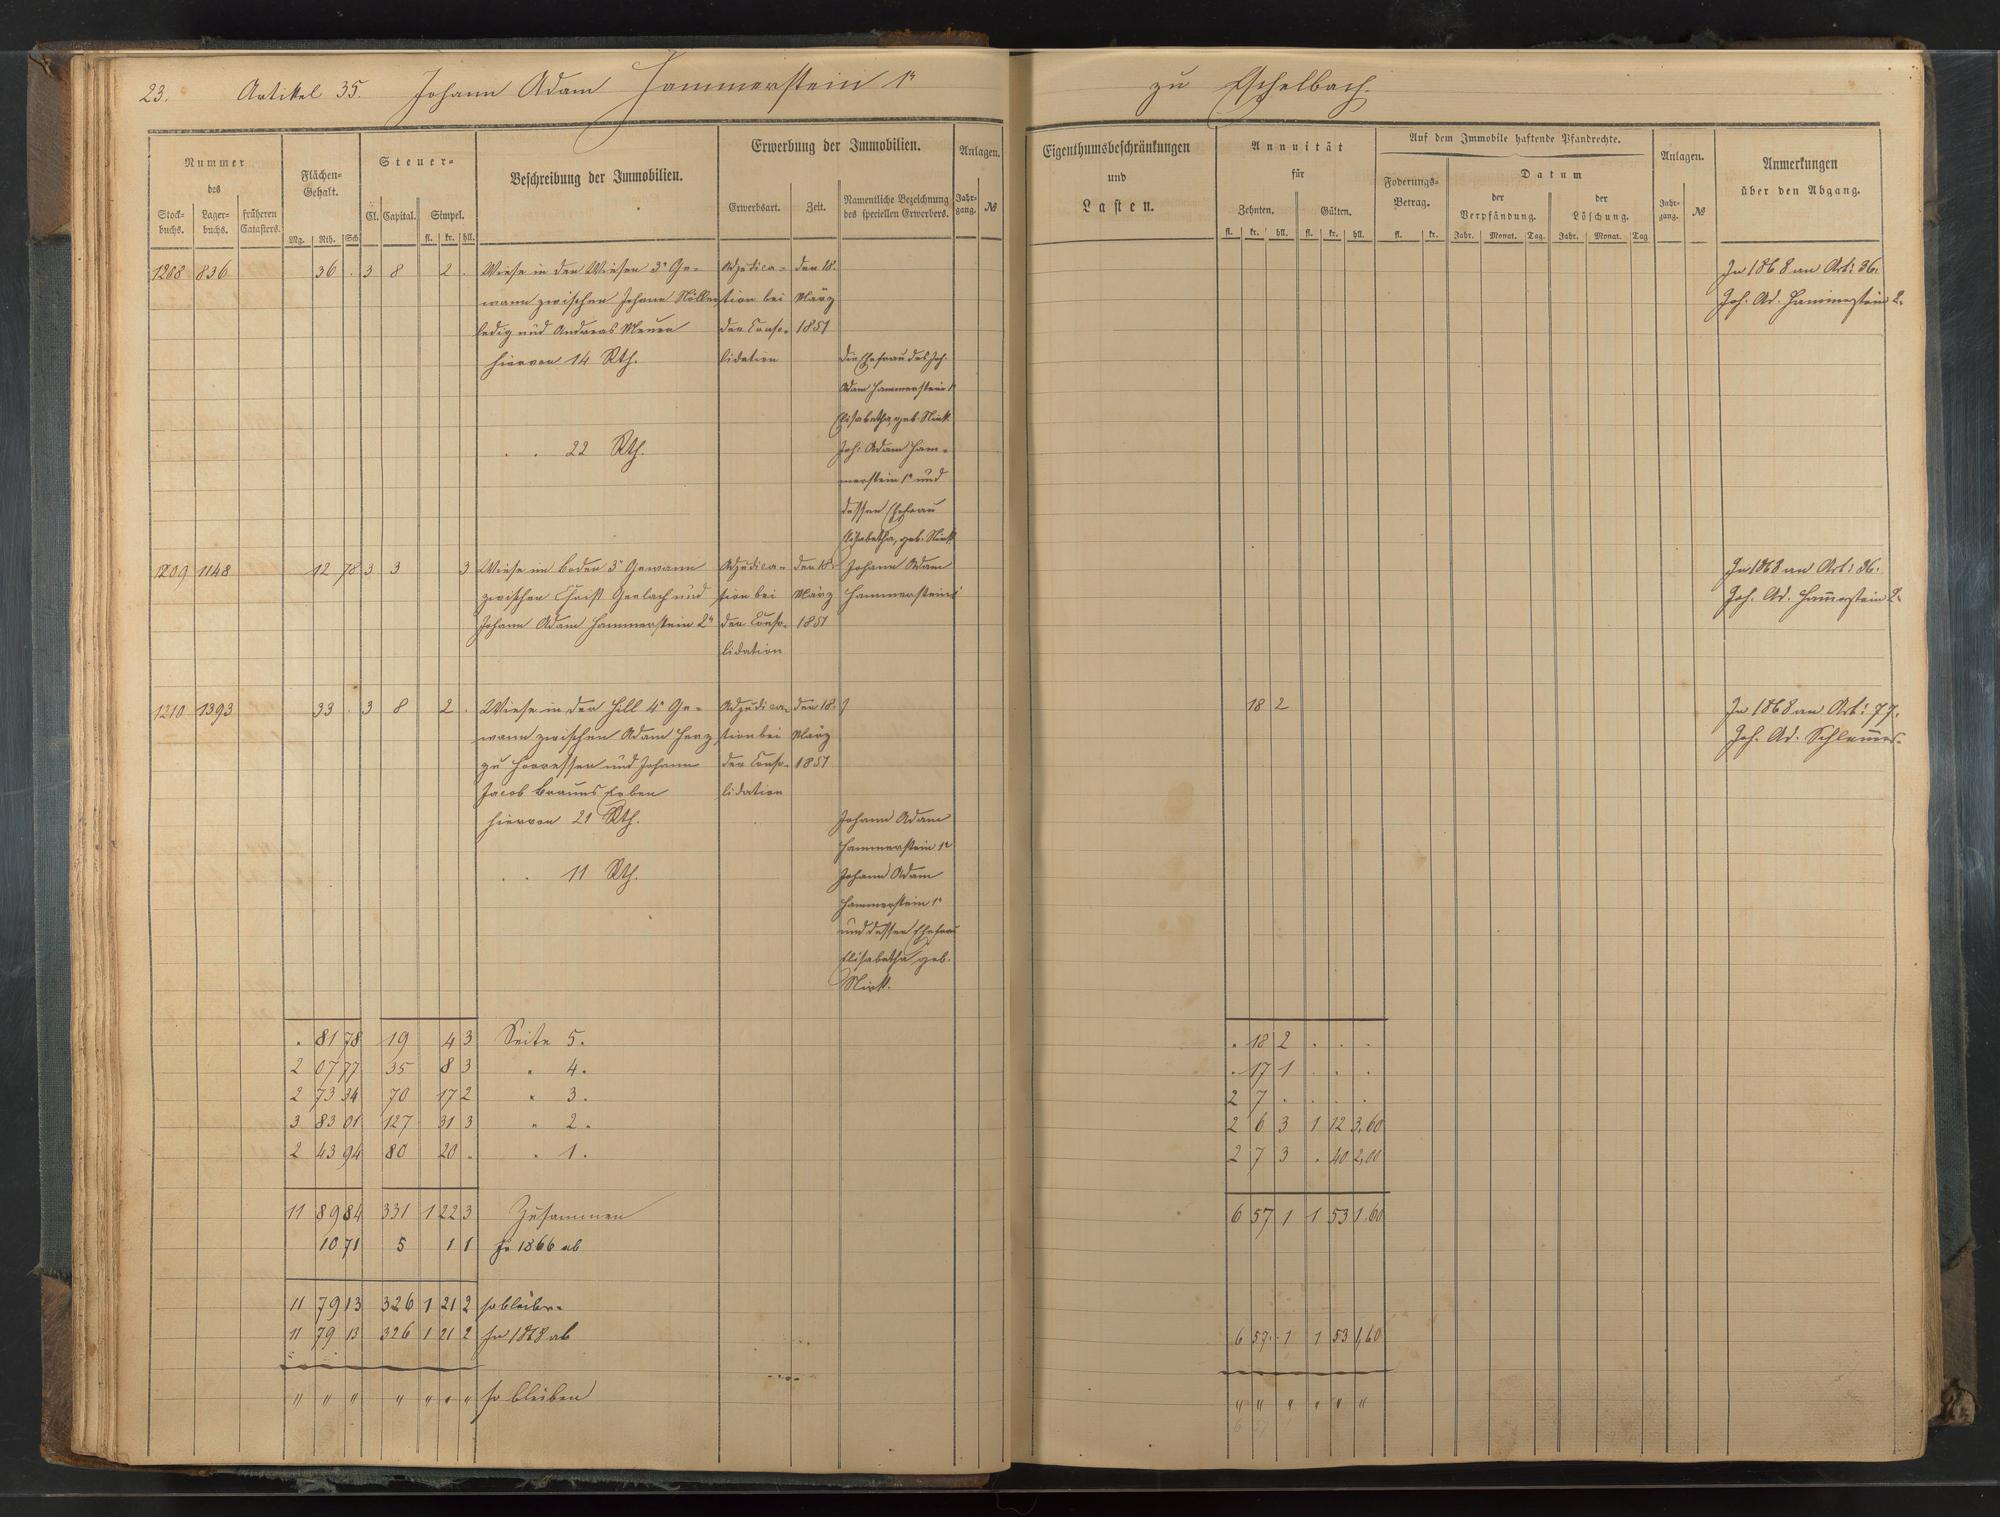 23. Artikel 35. Johann Adam Hammerstein 1r zu Eschelbach.
Nummer des
Stock-buchs. Lager-buchs. früheren Catasters.
Flächen-Gehalt.
Mg. Rth. Sch.
Steuer-
Cl. Capital. Simpel.
fl. kr. hll.
Beschreibung der Immobilien.
Erwerbung der Immobilien.
Erwerbsart. Zeit. Namentliche Bezeichnung des speciellen Erwerbers.
Anlagen.
Jahr-gang. №
Eigenthumsbeschränkungen
und
Lasten.
Annuität
für
Zehnten. Gülten.
fl. kr. hll. fl. kr. hll.
Auf dem Immobile haftende Pfandrechte.
Foderungs-Betrag.
fl. kr.
Datum
der Verpfändung. der Löschung.
Jahr. Monat. Tag. Jahr. Monat. Tag
Anlagen.
Jahr-gang. №
Anmerkungen
über den Abgang.
1208 836 36 . 3 8 2 . Wiese in den Wiesen 3r Ge- Adjudica- den 18. In 1868 an Art: 36.
wann zwischen Johann tion bei März Joh. Ad. Hammerstein 2r
ledig und Andreas Meurer der Conso- 1851
hiervon 14 Rth. lidation die Ehefrau des Joh.
Adam Hammerstein 1r
Elisabetha, geb.
. . 22 Rth. Joh: Adam Ham-
merstein 1r und
dessen Ehefrau
Elisabetha, geb.
1209 1148 12 78 3 3 3 Wiese im Boden 3r Gewann Adjudica- den 18. Johann Adam In 1868 an Art: 36.
zwischen Christ Gerlach und tion bei März Hammerstein 1r Joh. Ad. Hamerstein 2r
Johann Adam Hammerstein 2r der Conso- 1851
lidation
1210 1393 33 . 3 8 2 . Wiese in der Hill 4r Ge- Adjudica- den 18. 18 2 In 1868 an Art: 77.
wann zwischen Adam Herz tion bei März Joh. Ad.
zu Horressen und Johann der Conso- 1851
Jacob Brauns Erben lidation
hiervon 21 Rth. Johann Adam
Hammerstein 1r
. . 11 Rth. Johann Adam
Hammerstein 1r
und dessen Ehefrau
Elisabetha geb.
. 81 78 19 4 3 Seite 5. . 18 2 . . .
2 07 77 35 8 3 " 4. . 17 1 . . .
2 73 34 70 17 2 " 3. 2 7 . . . .
3 83 01 127 31 3 " 2. 2 6 3 1 12 3,60
2 43 94 80 20 . " 1. 2 7 3 . 40 2,00
11 89 84 331 1 22 3 Zusammen 6 57 1 1 53 1,60
10 71 5 1 1 In 1866 ab
11 79 13 326 1 21 2 so bleiben
11 79 13 326 1 21 2 In 1868 ab 6 57 1 1 53 1,60
" " " " " " " so bleiben " " " " " "